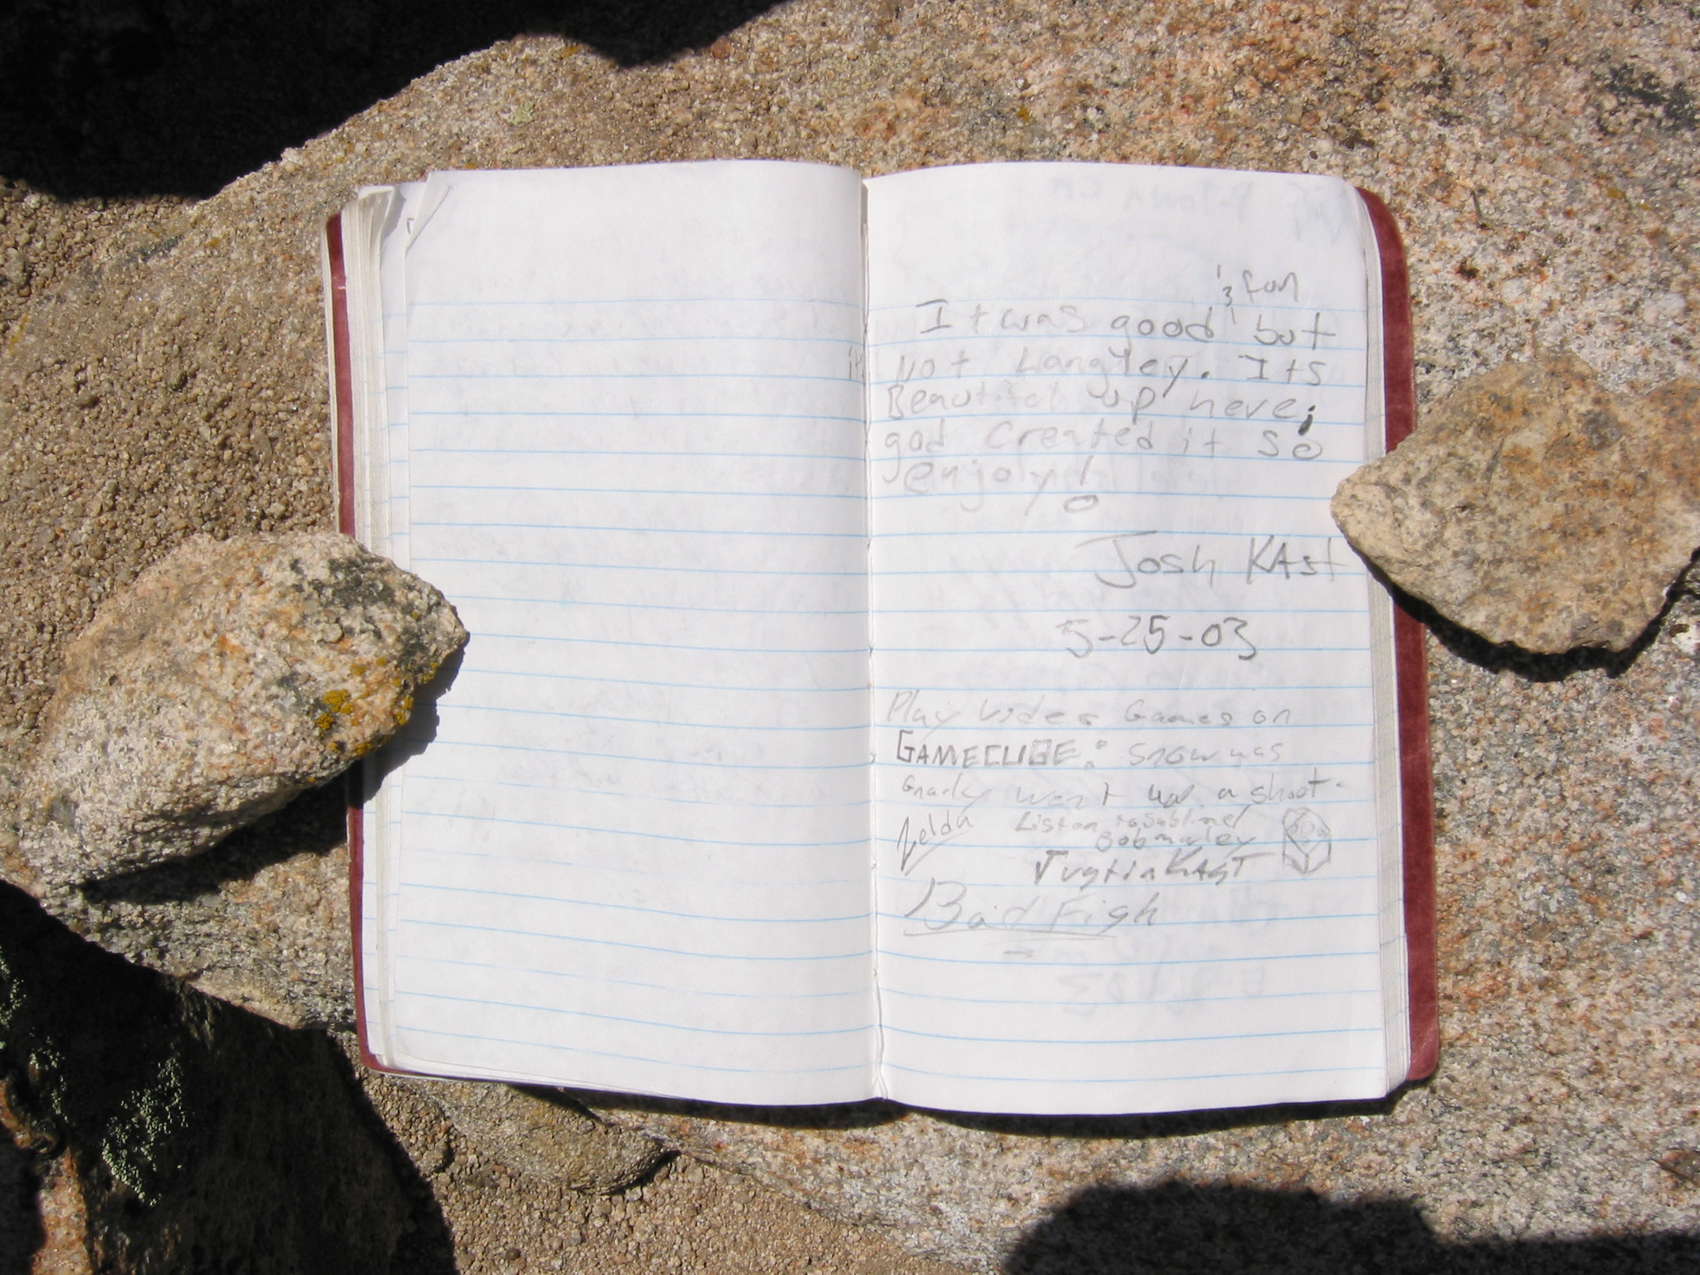 & fun
It was good but
not Langley. Its
Beautiful up here;
god created it so
enjoy!
Josh KAst
5-25-03
Play video Games on
GAMECUBE: Snow was
Gnarly went a shoot.
Zelda Listen to Sublime/
Bobmarley
Justin KAST
Bad Fish